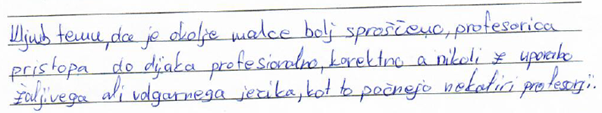 Kljub temu, da je okolje malce bolj sproščeno, profesorica
pristopa do dijaka profesionalno, korektno a nikoli z uporabo
žaljivega ali vulgarnega jezika, kot to počnejo nekatiri profesorji.